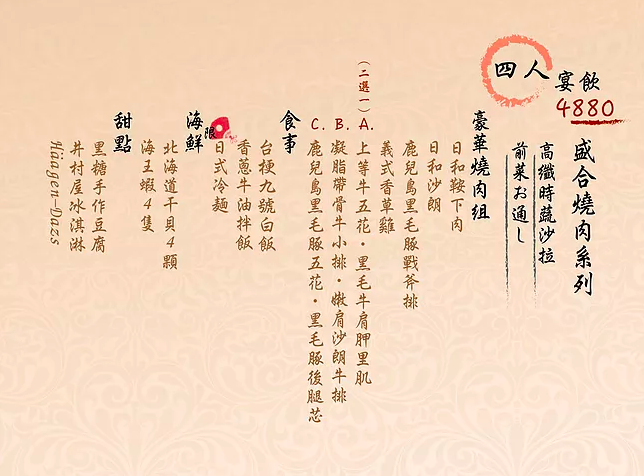 四人
宴飲
4880
盛合燒肉系列
高纖時蔬沙拉
前菜お通し
豪華燒肉組
日和鞍下肉
日和沙朗
鹿兒島黑毛豚戰斧排
義式香草雞
(二選一)
A. 上等牛五花・黑毛牛肩胛里肌
B. 凝脂帶骨牛小排・嫩肩沙朗牛排
C. 鹿兒島黑毛豚五花・黑毛豚後腿芯
食事
台梗九號白飯
香蔥牛油拌飯
日式冷麵
海鮮
限
北海道干貝4顆
海王蝦4隻
甜點
黑糖手作豆腐
井村屋冰淇淋
Häagen-Dazs